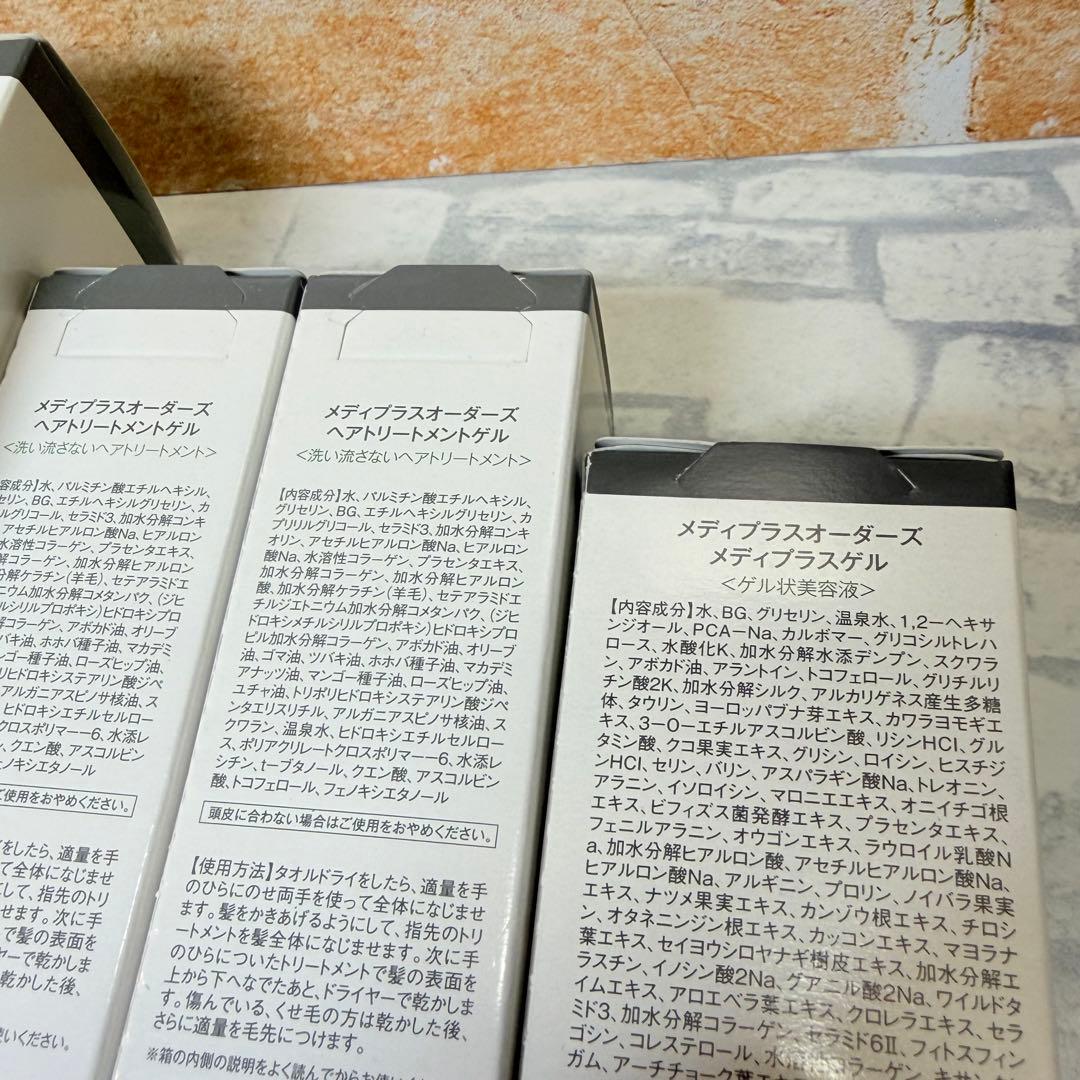 メディプラスオーダーズ
ヘアトリートメントゲル
<洗い流さないヘアトリートメント>
容成分】水、パルミチン酸エチルヘキシル、
セリン、BG、エチルヘキシルグリセリン、カ
リルグリコール、セラミド3、加水分解コンキ
アセチルヒアルロン酸Na、ヒアルロン
水溶性コラーゲン、プラセンタエキス、
解コラーゲン、加水分解ヒアルロン
分解ケラチン(羊毛)、セテアラミドエ
ニウム加水分解コメタンパク、(ジヒ
ルシリルプロポキシ)ヒドロキシプロ
解コラーゲン、アボカド油、オリーブ
バキ油、ホホバ種子油、マカデミ
ンゴー種子油、ローズヒップ油、
リヒドロキシステアリン酸ジペ
アルガニアスピノサ核油、ス
ヒドロキシエチルセルロー
クロスポリマー-6、水添レ
、クエン酸、アスコルビン
ェノキシエタノール
ご使用をおやめください。
をしたら、適量を手
て全体になじませ
にして、指先のトリ
せます。次に手
で髪の表面を
ヤーで乾かしま
乾かした後、
使いください。
メディプラスオーダーズ
ヘアトリートメントゲル
<洗い流さないヘアトリートメント>
【内容成分】水、パルミチン酸エチルヘキシル、
グリセリン、BG、エチルヘキシルグリセリン、カ
プリリルグリコール、セラミド3、加水分解コンキ
オリン、アセチルヒアルロン酸Na、ヒアルロン
酸Na、水溶性コラーゲン、プラセンタエキス、
加水分解コラーゲン、加水分解ヒアルロン
酸、加水分解ケラチン(羊毛)、セテアラミドエ
チルジエトニウム加水分解コメタンパク、(ジヒ
ドロキシメチルシリルプロポキシ)ヒドロキシプロ
ピル加水分解コラーゲン、アボカド油、オリーブ
油、ゴマ油、ツバキ油、ホホバ種子油、マカデミ
アナッツ油、マンゴー種子油、ローズヒップ油、
ユチャ油、トリポリヒドロキシステアリン酸ジペ
ンタエリスリチル、アルガニアスピノサ核油、ス
クワラン、温泉水、ヒドロキシエチルセルロー
ス、ポリアクリレートクロスポリマー-6、水添レ
シチン、t-ブタノール、クエン酸、アスコルビン
酸、トコフェロール、フェノキシエタノール
頭皮に合わない場合はご使用をおやめください。
【使用方法】タオルドライをしたら、適量を手
のひらにのせ両手を使って全体になじませ
ます。髪をかきあげるようにして、指先のトリ
ートメントを髪全体になじませます。次に手
のひらについたトリートメントで髪の表面を
上から下へなでたあと、ドライヤーで乾かしま
す。傷んでいる、くせ毛の方は乾かした後、
さらに適量を毛先につけます。
※箱の内側の説明をよく読んでからお使いくだ
メディプラスオーダーズ
メディプラスゲル
<ゲル状美容液>
【内容成分】水、BG、グリセリン、温泉水、1,2-ヘキサ
ンジオール、PCA-Na、カルボマー、グリコシルトレハ
ロース、水酸化K、加水分解水添デンプン、スクワラ
ン、アボカド油、アラントイン、トコフェロール、グリチルリ
チン酸2K、加水分解シルク、アルカリゲネス産生多糖
体、タウリン、ヨーロッパブナ芽エキス、カワラヨモギエ
キス、3-O-エチルアスコルビン酸、リシンHCl、グル
タミン酸、クコ果実エキス、グリシン、ロイシン、ヒスチジ
ンHCl、セリン、バリン、アスパラギン酸Na、トレオニン、
アラニン、イソロイシン、マロニエエキス、オニイチゴ根
エキス、ビフィズス菌発酵エキス、プラセンタエキス、
フェニルアラニン、オウゴンエキス、ラウロイル乳酸N
a、加水分解ヒアルロン酸、アセチルヒアルロン酸Na、
ヒアルロン酸Na、アルギニン、プロリン、ノイバラ果実
エキス、ナツメ果実エキス、カンゾウ根エキス、チロシ
ン、オタネニンジン根エキス、カッコンエキス、マヨラナ
葉エキス、セイヨウシロヤナギ樹皮エキス、加水分解エ
ラスチン、イノシン酸2Na、グアニル酸2Na、ワイルドタ
イムエキス、アロエベラ葉エキス、クロレラエキス、セラ
ミド3、加水分解コラーゲン、セラミド6II、フィトスフィン
ゴシン、コレステロール、水溶性コラーゲン、キサン
ガム、アーチチョーク葉エキ